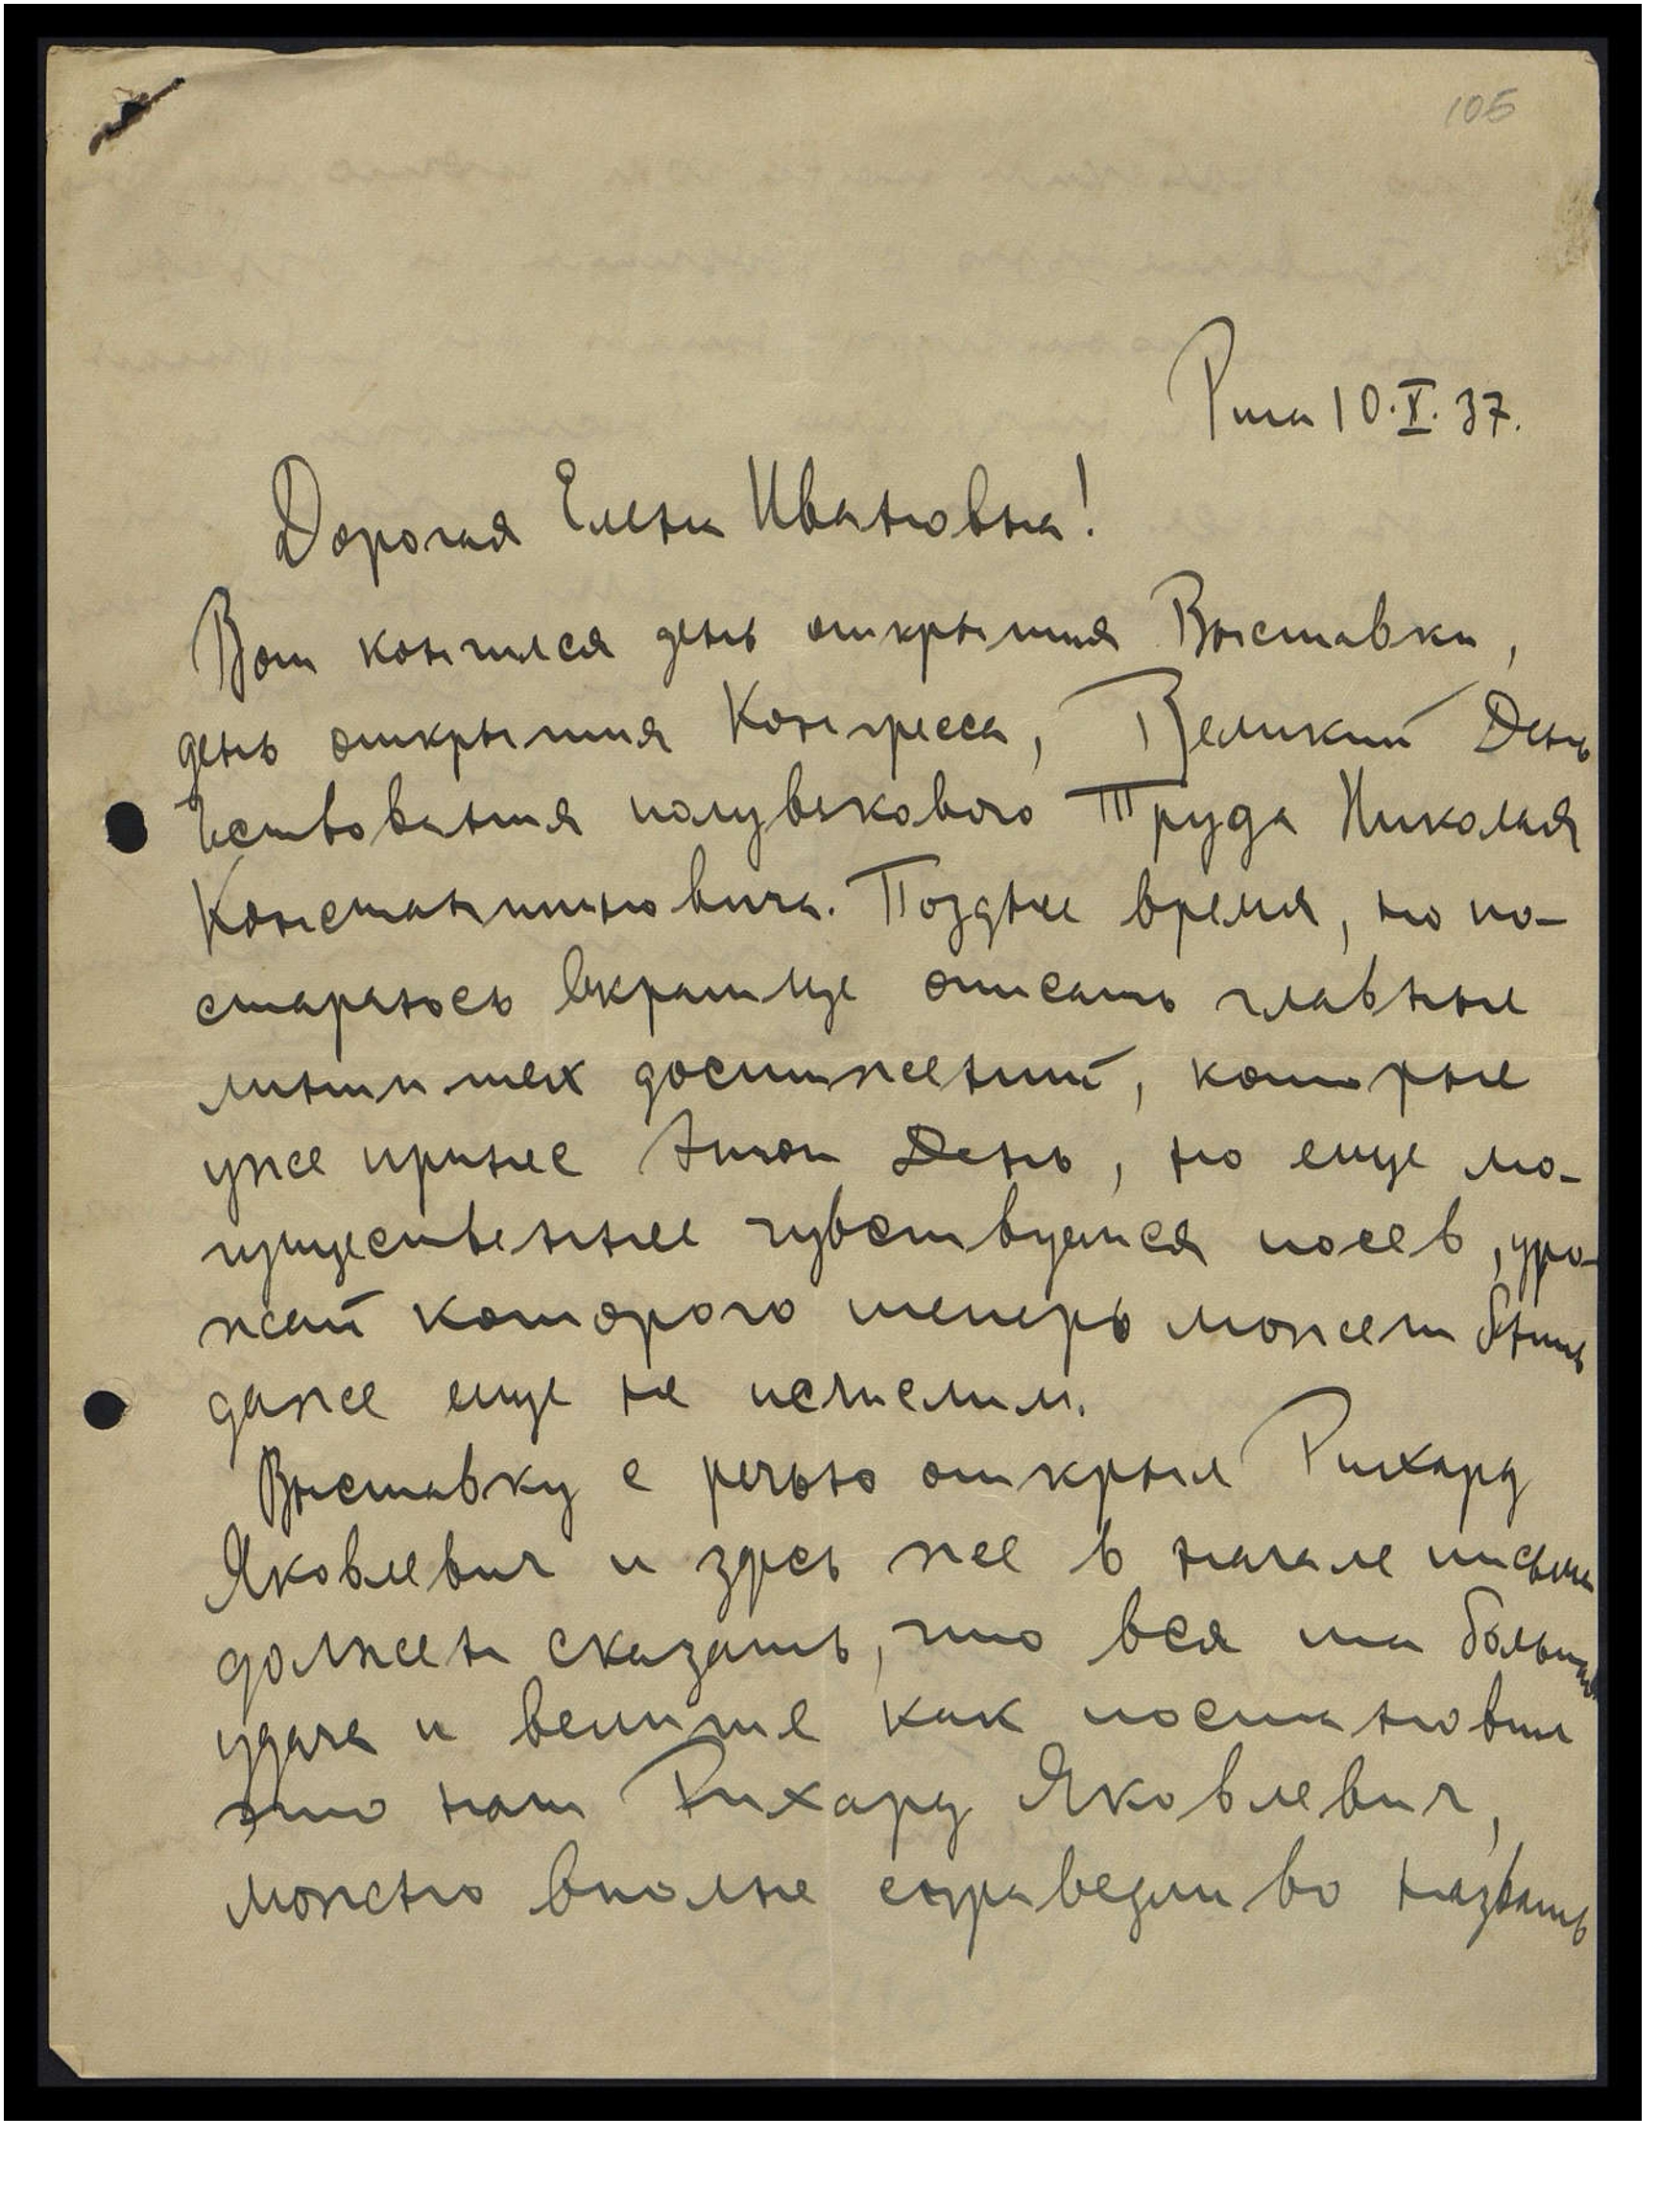 105
Рига 10.X.37.
Дорогая Елена Ивановна!
Вот кончился день открытия Выставки,
день открытия Конгресса, Великий День
Чествования полувекового Труда Николая
Константиновича. Позднее время, но по-
стараюсь вкратце описать главные
линии тех достижений, которые
уже принес Этот День, но еще мо-
гущественнее чувствуется посев, уро-
жай которого теперь может быть
даже еще не исчислим.
Выставку с речью открыл Рихард
Яковлевич и здесь же в начале письма
должен сказать, что вся та большая
удача и величие как постановил
это нам Рихард Яковлевич,
можно вполне справедливо назвать